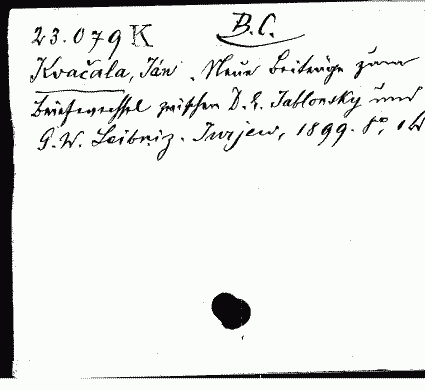 23.079 K B.C.
Kvačala, Ján. Neue Beiträge zum
Briefwechsel zwischen D. E. Jablonsky und
G. W. Leibniz. Jurjew, 1899. 8°,